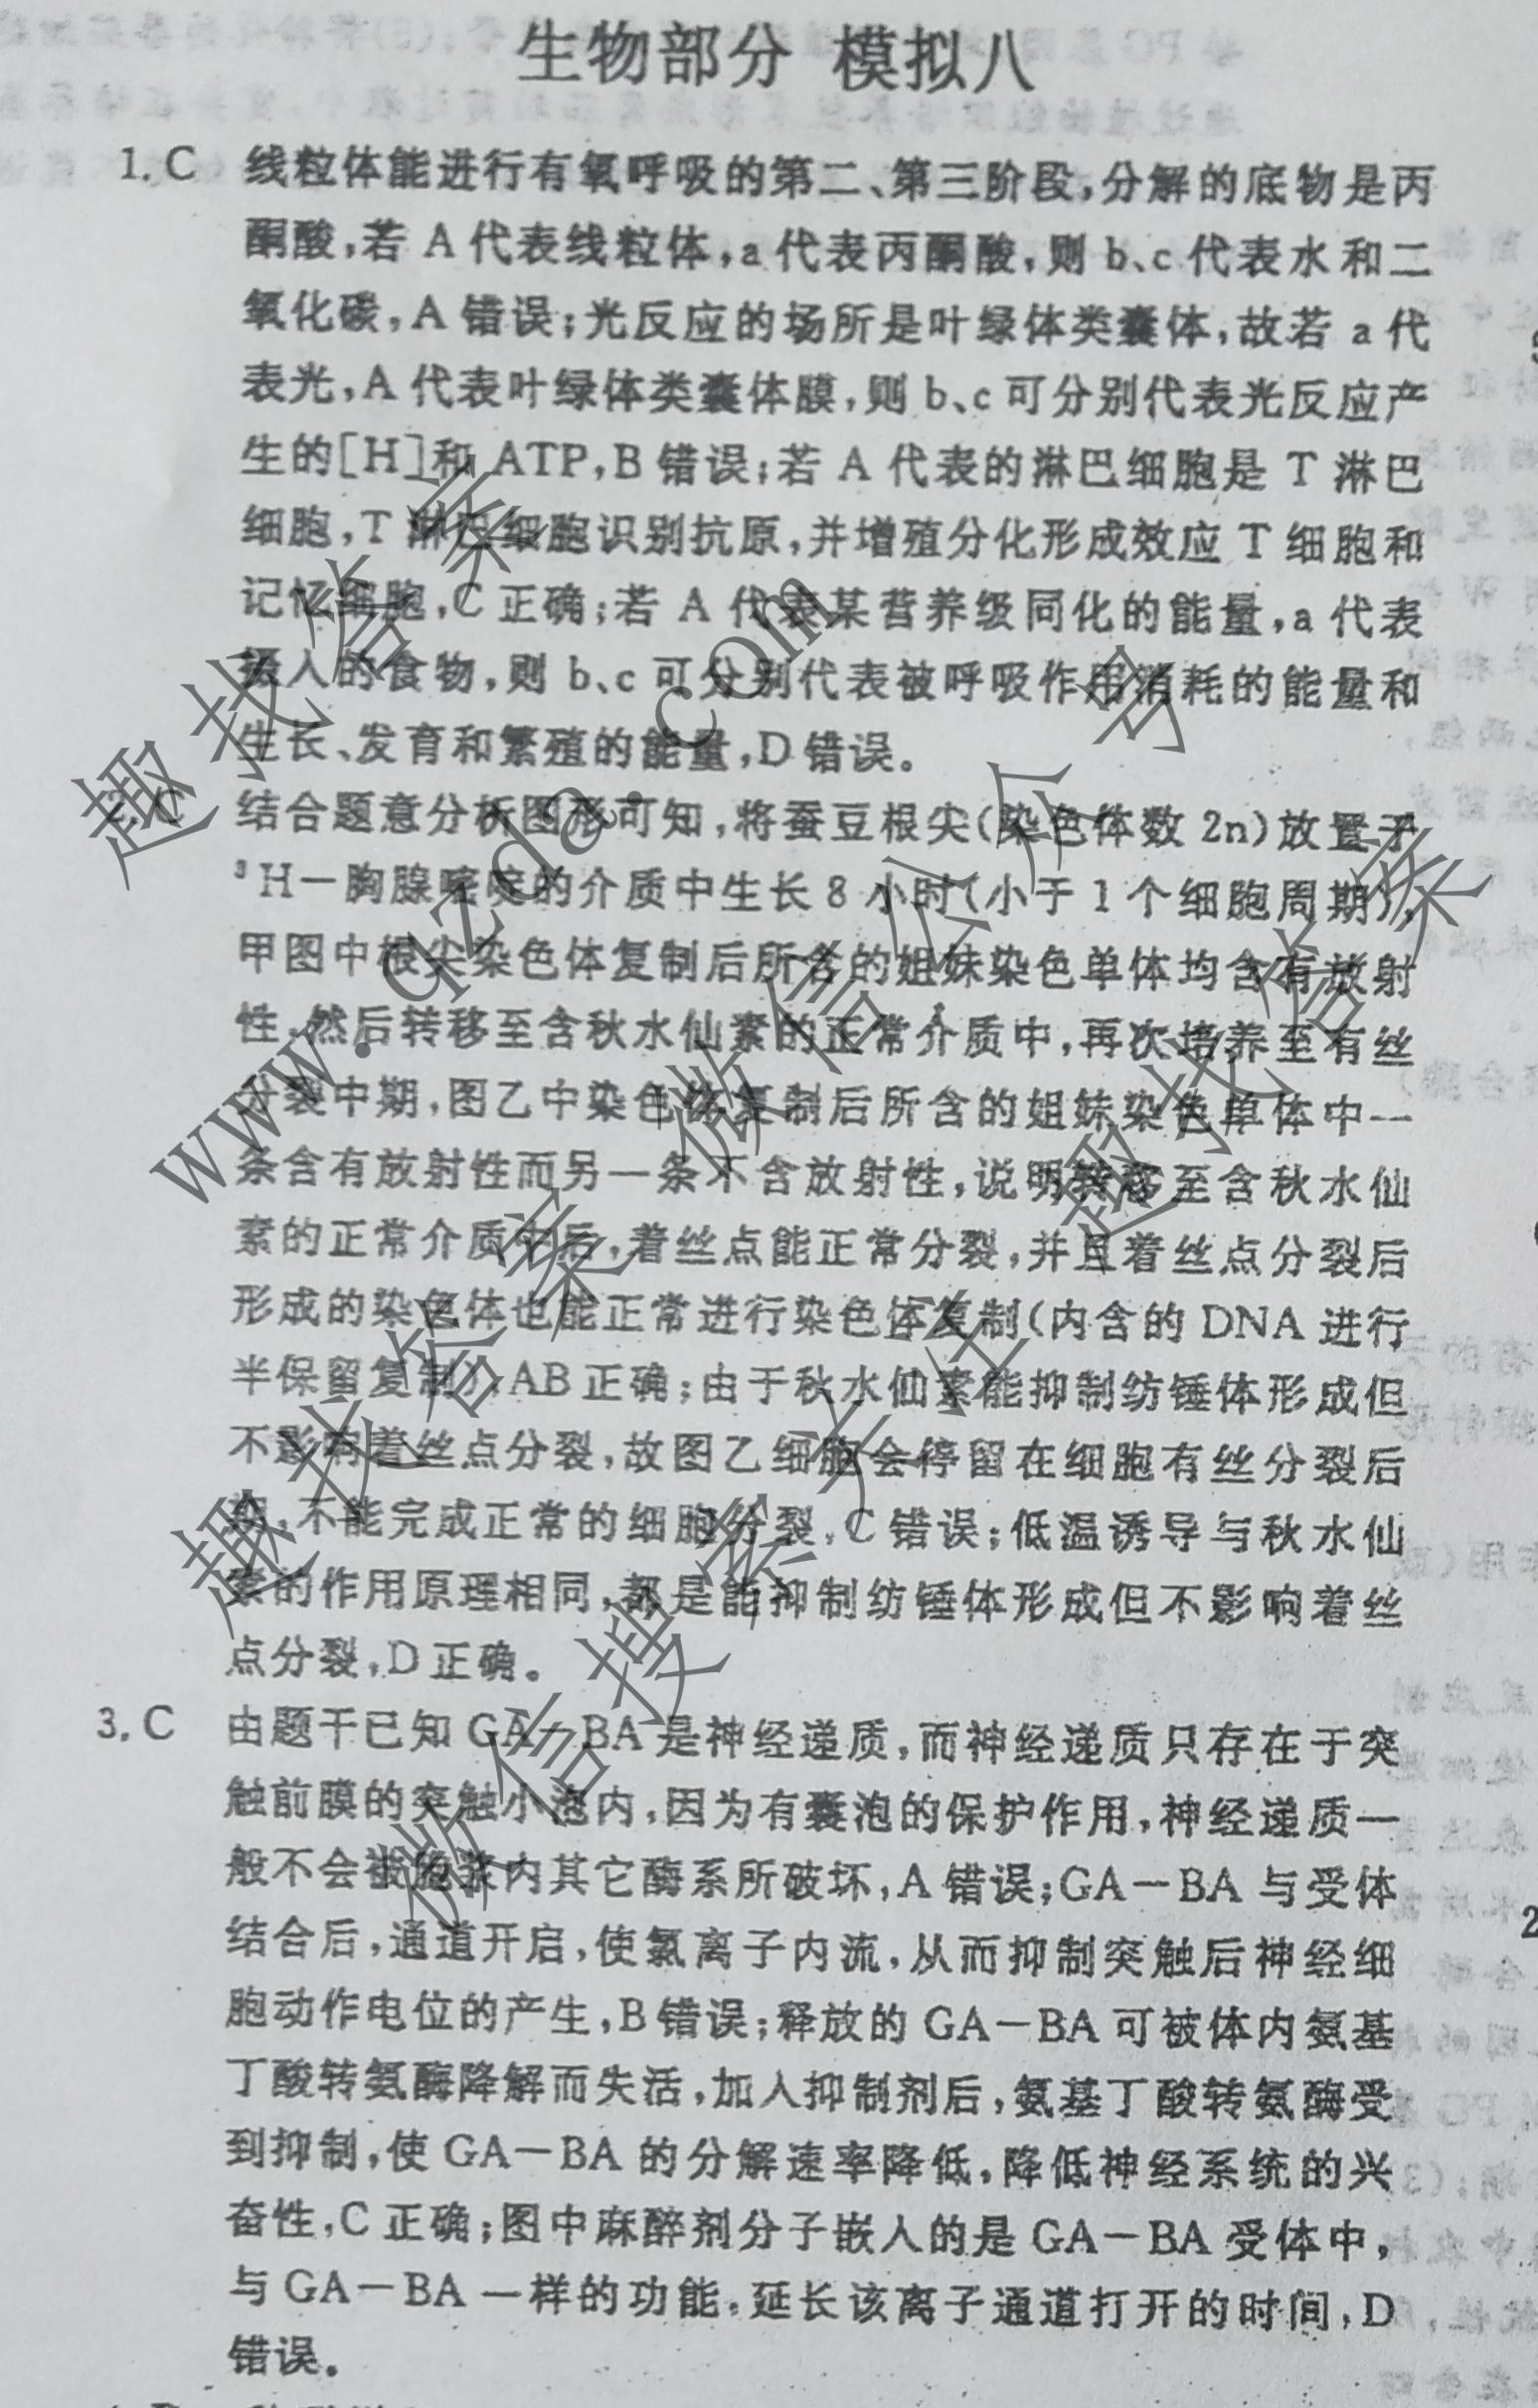 生物部分 模拟八
1. C 线粒体能进行有氧呼吸的第二、第三阶段,分解的底物是丙
酮酸,若 A 代表线粒体,a 代表丙酮酸,则 b、c 代表水和二
氧化碳,A 错误;光反应的场所是叶绿体类囊体,故若 a 代
表光,A 代表叶绿体类囊体膜,则 b、c 可分别代表光反应产
生的[H]和 ATP,B 错误;若 A 代表的淋巴细胞是 T 淋巴
细胞,T 淋巴细胞识别抗原,并增殖分化形成效应 T 细胞和
记忆细胞,C 正确;若 A 代表某营养级同化的能量,a 代表
摄入的食物,则 b、c 可分别代表被呼吸作用消耗的能量和
生长、发育和繁殖的能量,D 错误。
2. C 结合题意分析图形可知,将蚕豆根尖(染色体数 2n)放置于
³H—胸腺嘧啶的介质中生长 8 小时(小于 1 个细胞周期),
甲图中根尖染色体复制后所含的姐妹染色单体均含有放射
性,然后转移至含秋水仙素的正常介质中,再次培养至有丝
分裂中期,图乙中染色体复制后所含的姐妹染色单体中一
条含有放射性而另一条不含放射性,说明转移至含秋水仙
素的正常介质中后,着丝点能正常分裂,并且着丝点分裂后
形成的染色体也能正常进行染色体复制(内含的 DNA 进行
半保留复制),AB 正确;由于秋水仙素能抑制纺锤体形成但
不影响着丝点分裂,故图乙细胞会停留在细胞有丝分裂后
期,不能完成正常的细胞分裂,C 错误;低温诱导与秋水仙
素的作用原理相同,都是能抑制纺锤体形成但不影响着丝
点分裂,D 正确。
3. C 由题干已知 GA—BA 是神经递质,而神经递质只存在于突
触前膜的突触小泡内,因为有囊泡的保护作用,神经递质一
般不会被胞浆内其它酶系所破坏,A 错误;GA—BA 与受体
结合后,通道开启,使氯离子内流,从而抑制突触后神经细
胞动作电位的产生,B 错误;释放的 GA—BA 可被体内氨基
丁酸转氨酶降解而失活,加入抑制剂后,氨基丁酸转氨酶受
到抑制,使 GA—BA 的分解速率降低,降低神经系统的兴
奋性,C 正确;图中麻醉剂分子嵌入的是 GA—BA 受体中,
与 GA—BA 一样的功能,延长该离子通道打开的时间,D
错误。
趣找答案
www.qzda.com
微信公众号
趣找答案
趣找答案
微信搜索关注